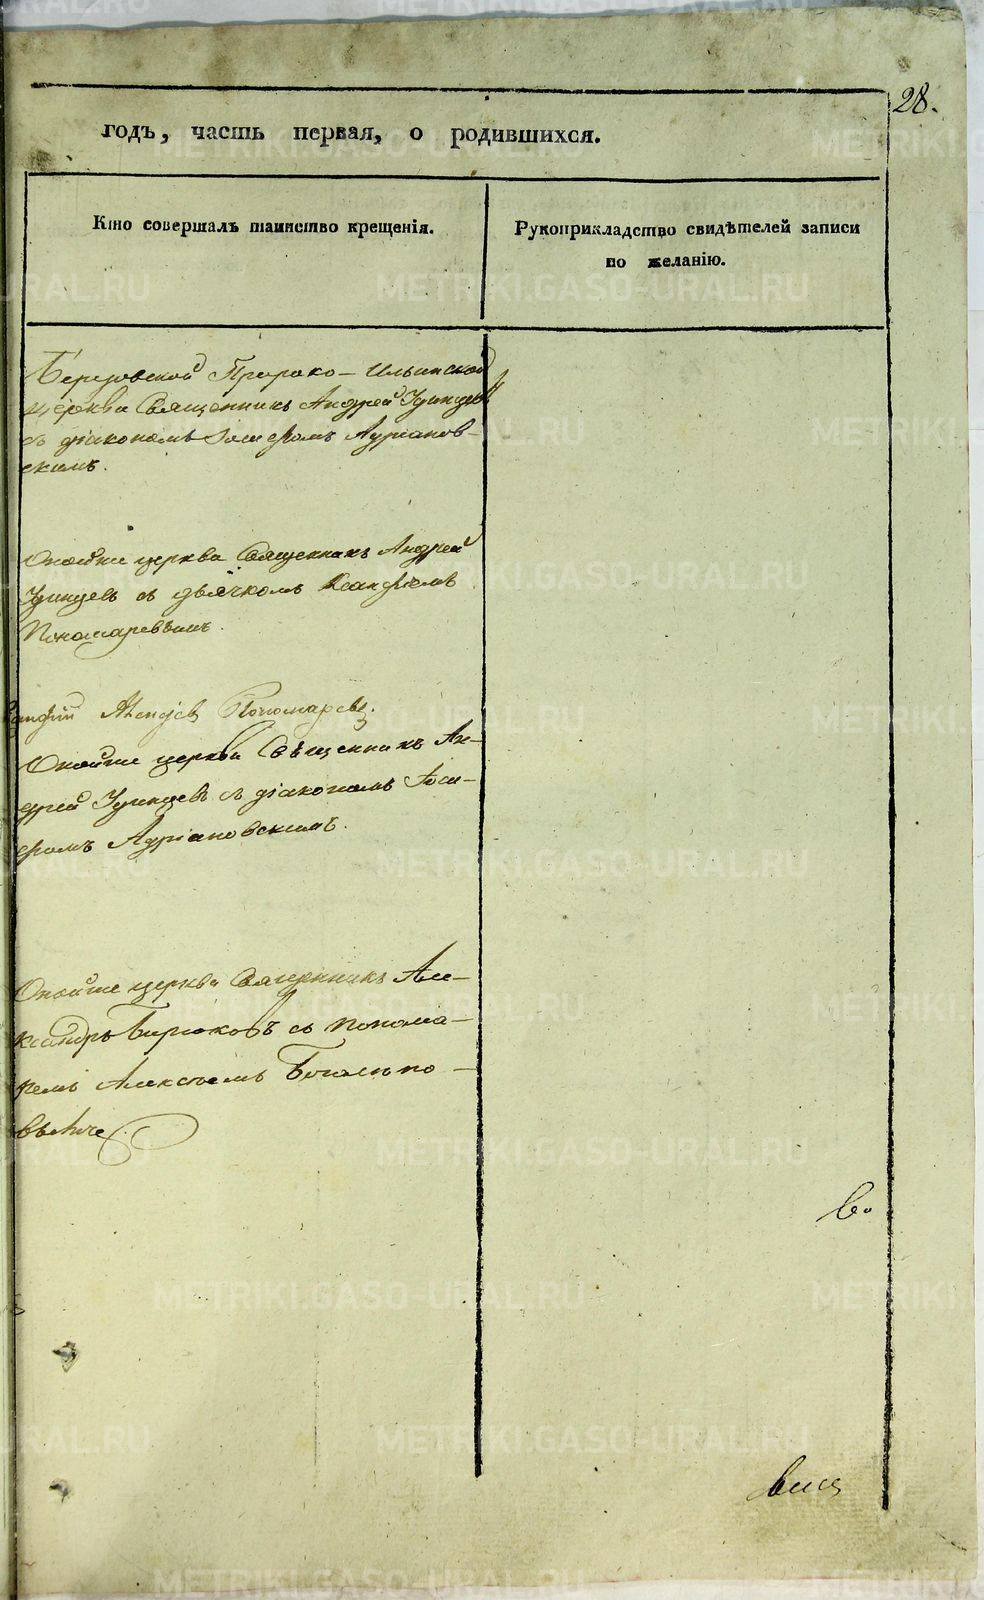 28.
годъ, часть первая, о родившихся.
Кто совершалъ таинство крещенія.
Рукоприкладство свидѣтелей записи
по желанію.
Березовской Пророко-Ильинской
церкви Священникъ Андрей Удинцевъ
съ діакономъ Іосифомъ Адріанов-
скимъ.
Онойже церкви Священникъ Андрей
Удинцевъ съ дьячкомъ
Пономаревымъ.
Пономаревъ.
Онойже церкви Священникъ Ан-
дрей Удинцевъ съ діакономъ Іоси-
фомъ Адріановскимъ.
Онойже церкви Священникъ Але-
ксандръ Бирюковъ съ понома-
ремъ Алексѣемъ
METRIKI.GASO-URAL.RU